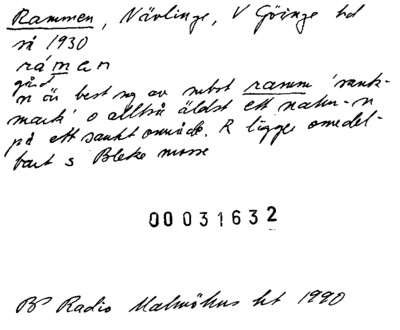 Rammen, Nävlinge, V Göinge hd
nä 1930
råman
gård
n är best sg av subst ramm 'sank-
mark' o alltså äldst ett natur-n
på ett sankt område. R ligger omedel-
bart s Bleke mosse
00031632
BP Radio Malmöhus ht 1990